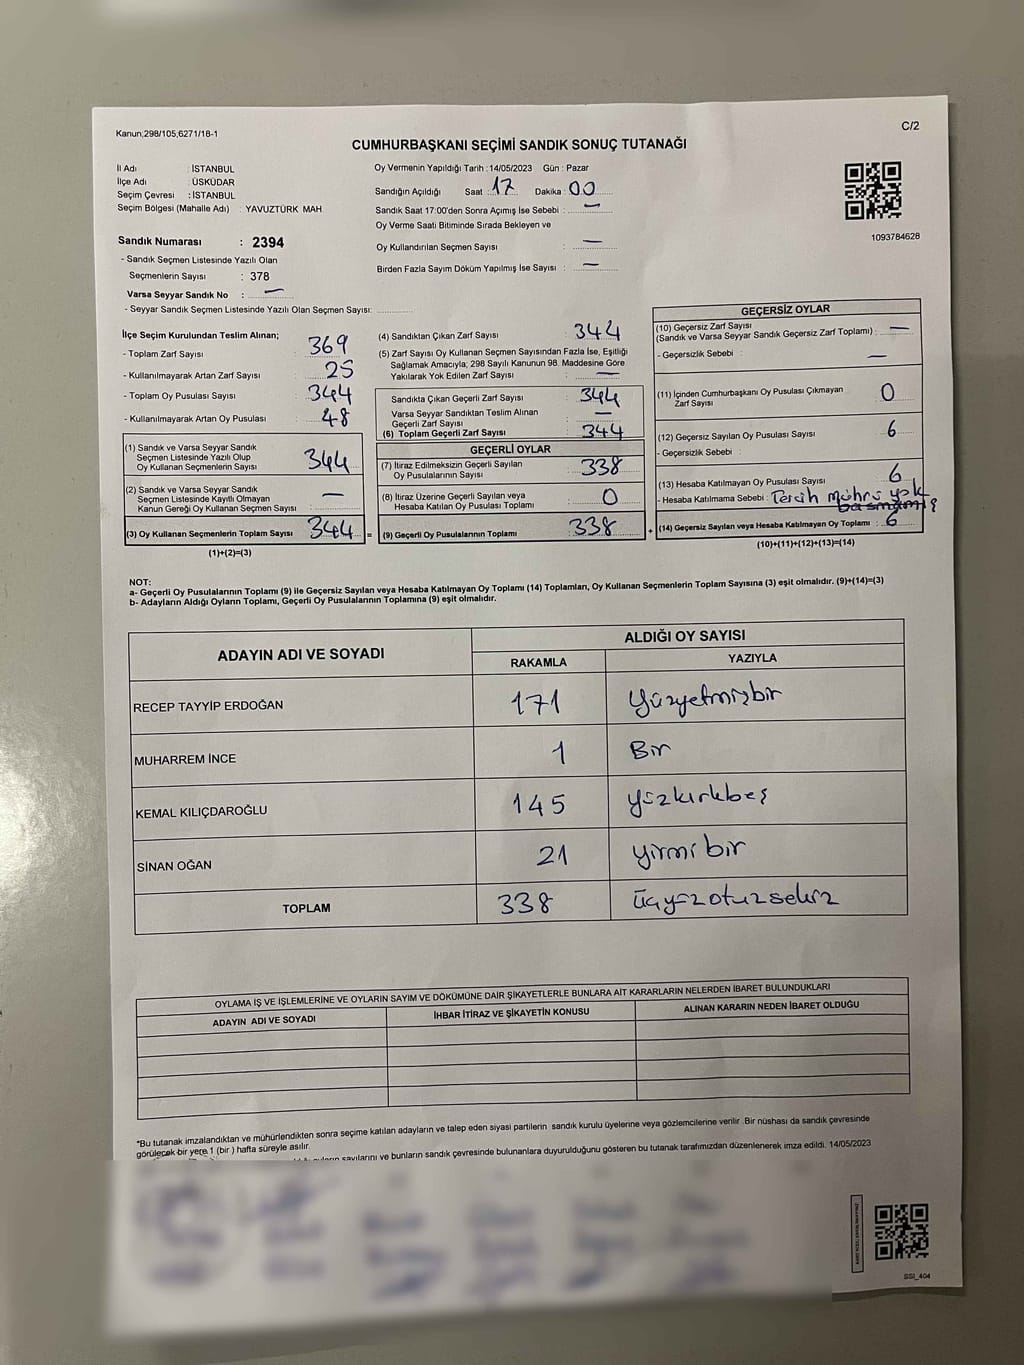 Kanun;298/105,6271/18-1
C/2
CUMHURBAŞKANI SEÇİMİ SANDIK SONUÇ TUTANAĞI
İl Adı : İSTANBUL
İlçe Adı : ÜSKÜDAR
Seçim Çevresi : İSTANBUL
Seçim Bölgesi (Mahalle Adı) : YAVUZTÜRK MAH.
Sandık Numarası : 2394
- Sandık Seçmen Listesinde Yazılı Olan
Seçmenlerin Sayısı : 378
Varsa Seyyar Sandık No : —
- Seyyar Sandık Seçmen Listesinde Yazılı Olan Seçmen Sayısı:
Oy Vermenin Yapıldığı Tarih : 14/05/2023 Gün : Pazar
Sandığın Açıldığı Saat : 17 Dakika : 00
Sandık Saat 17:00'den Sonra Açımış İse Sebebi : —
Oy Verme Saati Bitiminde Sırada Bekleyen ve
Oy Kullandırılan Seçmen Sayısı : —
Birden Fazla Sayım Döküm Yapılmış İse Sayısı : —
1093784628
İlçe Seçim Kurulundan Teslim Alınan;
- Toplam Zarf Sayısı : 369
- Kullanılmayarak Artan Zarf Sayısı : 25
- Toplam Oy Pusulası Sayısı : 344
- Kullanılmayarak Artan Oy Pusulası : 48
(1) Sandık ve Varsa Seyyar Sandık
Seçmen Listesinde Yazılı Olup
Oy Kullanan Seçmenlerin Sayısı : 344
(2) Sandık ve Varsa Seyyar Sandık
Seçmen Listesinde Kayıtlı Olmayan
Kanun Gereği Oy Kullanan Seçmen Sayısı : —
(3) Oy Kullanan Seçmenlerin Toplam Sayısı : 344 =
(1)+(2)=(3)
(4) Sandıktan Çıkan Zarf Sayısı : 344
(5) Zarf Sayısı Oy Kullanan Seçmen Sayısından Fazla İse, Eşitliği
Sağlamak Amacıyla; 298 Sayılı Kanunun 98. Maddesine Göre
Yakılarak Yok Edilen Zarf Sayısı : —
Sandıkta Çıkan Geçerli Zarf Sayısı : 344
Varsa Seyyar Sandıktan Teslim Alınan
Geçerli Zarf Sayısı : —
(6) Toplam Geçerli Zarf Sayısı : 344
GEÇERLİ OYLAR
(7) İtiraz Edilmeksizin Geçerli Sayılan
Oy Pusulalarının Sayısı : 338
(8) İtiraz Üzerine Geçerli Sayılan veya
Hesaba Katılan Oy Pusulası Toplamı : 0
(9) Geçerli Oy Pusulalarının Toplamı : 338 +
GEÇERSİZ OYLAR
(10) Geçersiz Zarf Sayısı
(Sandık ve Varsa Seyyar Sandık Geçersiz Zarf Toplamı) : —
- Geçersizlik Sebebi : —
(11) İçinden Cumhurbaşkanı Oy Pusulası Çıkmayan
Zarf Sayısı : 0
(12) Geçersiz Sayılan Oy Pusulası Sayısı : 6
- Geçersizlik Sebebi :
(13) Hesaba Katılmayan Oy Pusulası Sayısı : 6
- Hesaba Katılmama Sebebi : Tercih mührü yok
basmamış
(14) Geçersiz Sayılan veya Hesaba Katılmayan Oy Toplamı : 6
(10)+(11)+(12)+(13)=(14)
NOT:
a- Geçerli Oy Pusulalarının Toplamı (9) ile Geçersiz Sayılan veya Hesaba Katılmayan Oy Toplamı (14) Toplamları, Oy Kullanan Seçmenlerin Toplam Sayısına (3) eşit olmalıdır. (9)+(14)=(3)
b- Adayların Aldığı Oyların Toplamı, Geçerli Oy Pusulalarının Toplamına (9) eşit olmalıdır.
ADAYIN ADI VE SOYADI
ALDIĞI OY SAYISI
RAKAMLA YAZIYLA
RECEP TAYYİP ERDOĞAN 171 Yüzyetmişbir
MUHARREM İNCE 1 Bir
KEMAL KILIÇDAROĞLU 145 yüzkırkbeş
SİNAN OĞAN 21 yirmibir
TOPLAM 338 üçyüzotuzsekiz
OYLAMA İŞ VE İŞLEMLERİNE VE OYLARIN SAYIM VE DÖKÜMÜNE DAİR ŞİKAYETLERLE BUNLARA AİT KARARLARIN NELERDEN İBARET BULUNDUKLARI
ADAYIN ADI VE SOYADI İHBAR İTİRAZ VE ŞİKAYETİN KONUSU ALINAN KARARIN NEDEN İBARET OLDUĞU
*Bu tutanak imzalandıktan ve mühürlendikten sonra seçime katılan adayların ve talep eden siyasi partilerin sandık kurulu üyelerine veya gözlemcilerine verilir. Bir nüshası da sandık çevresinde
görülecek bir yere 1 (bir ) hafta süreyle asılır.
sayılarını ve bunların sandık çevresinde bulunanlara duyurulduğunu gösteren bu tutanak tarafımızdan düzenlenerek imza edildi. 14/05/2023
SSI_404